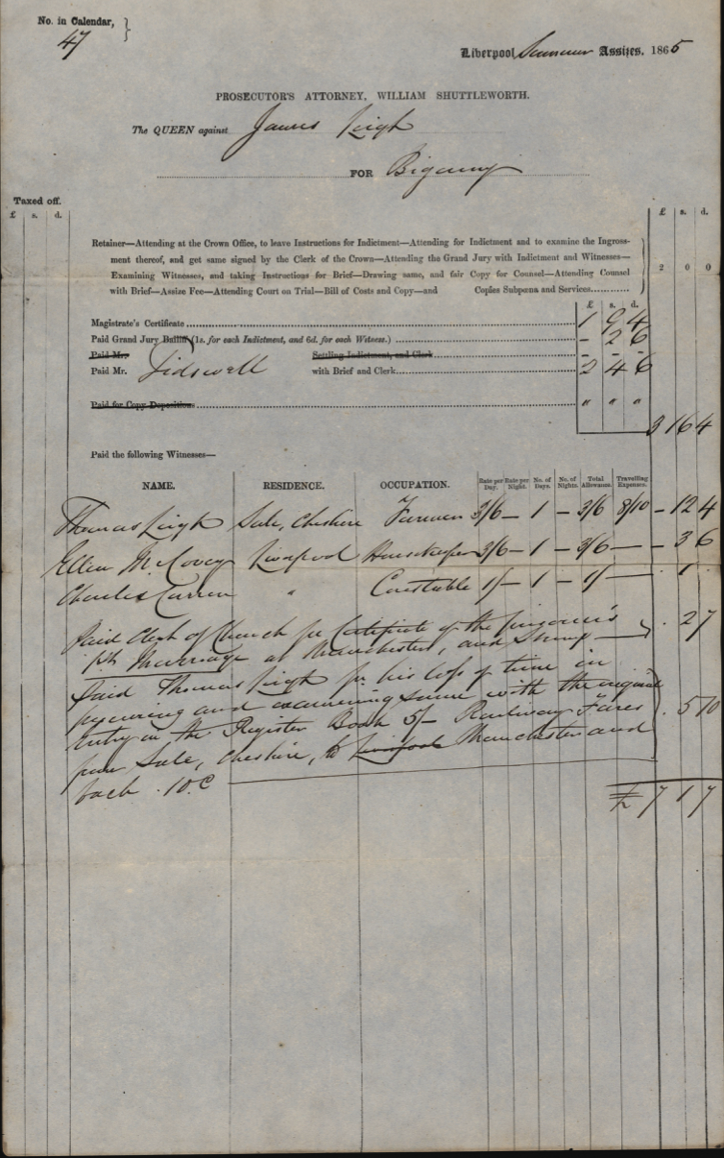 No. in Calendar,
47
Liverpool Summer Assizes. 1865
PROSECUTOR'S ATTORNEY, WILLIAM SHUTTLEWORTH.
The QUEEN against James Leigh
FOR Bigamy
Taxed off.
£ s. d.
£ s. d.
Retainer—Attending at the Crown Office, to leave Instructions for Indictment—Attending for Indictment and to examine the Ingross-
ment thereof, and get same signed by the Clerk of the Crown—Attending the Grand Jury with Indictment and Witnesses—
Examining Witnesses, and taking Instructions for Brief—Drawing same, and fair Copy for Counsel—Attending Counsel 2 0 0
with Brief—Assize Fee—Attending Court on Trial—Bill of Costs and Copy—and Copies Subpœna and Services
£ s. d.
Magistrate's Certificate 1 9 4
Paid Grand Jury Bailiff (1s. for each Indictment, and 6d. for each Witness.) - 2 6
Paid Mr. Settling Indictment, and Clerk - - -
Paid Mr. Tidswell with Brief and Clerk 2 4 6
Paid for Copy Depositions " " "
3 16 4
Paid the following Witnesses—
NAME. RESIDENCE. OCCUPATION. Rate per Day. Rate per Night. No. of Days. No. of Nights. Total Allowance. Travelling Expenses.
Thomas Leigh Sale, Cheshire Farmer 3/6 — 1 — 3/6 8/10 - 12 4
Ellen McCovey Liverpool Housekeeper 3/6 — 1 — 3/6 — - 3 6
Charles Curren " Constable 1/- — 1 — 1/- — . 1 .
Paid Clerk of Church for Certificate of the prisoner's
Marriage at Manchester, and Stamp — . 2 7
Paid Thomas Leigh for his loss of time in
procuring and examining same with the original
Entry in the Register Book 5/- Railway Fares . 5 10
from Sale, Cheshire, to Liverpool Manchester and
back . 10d
£ 7 1 7